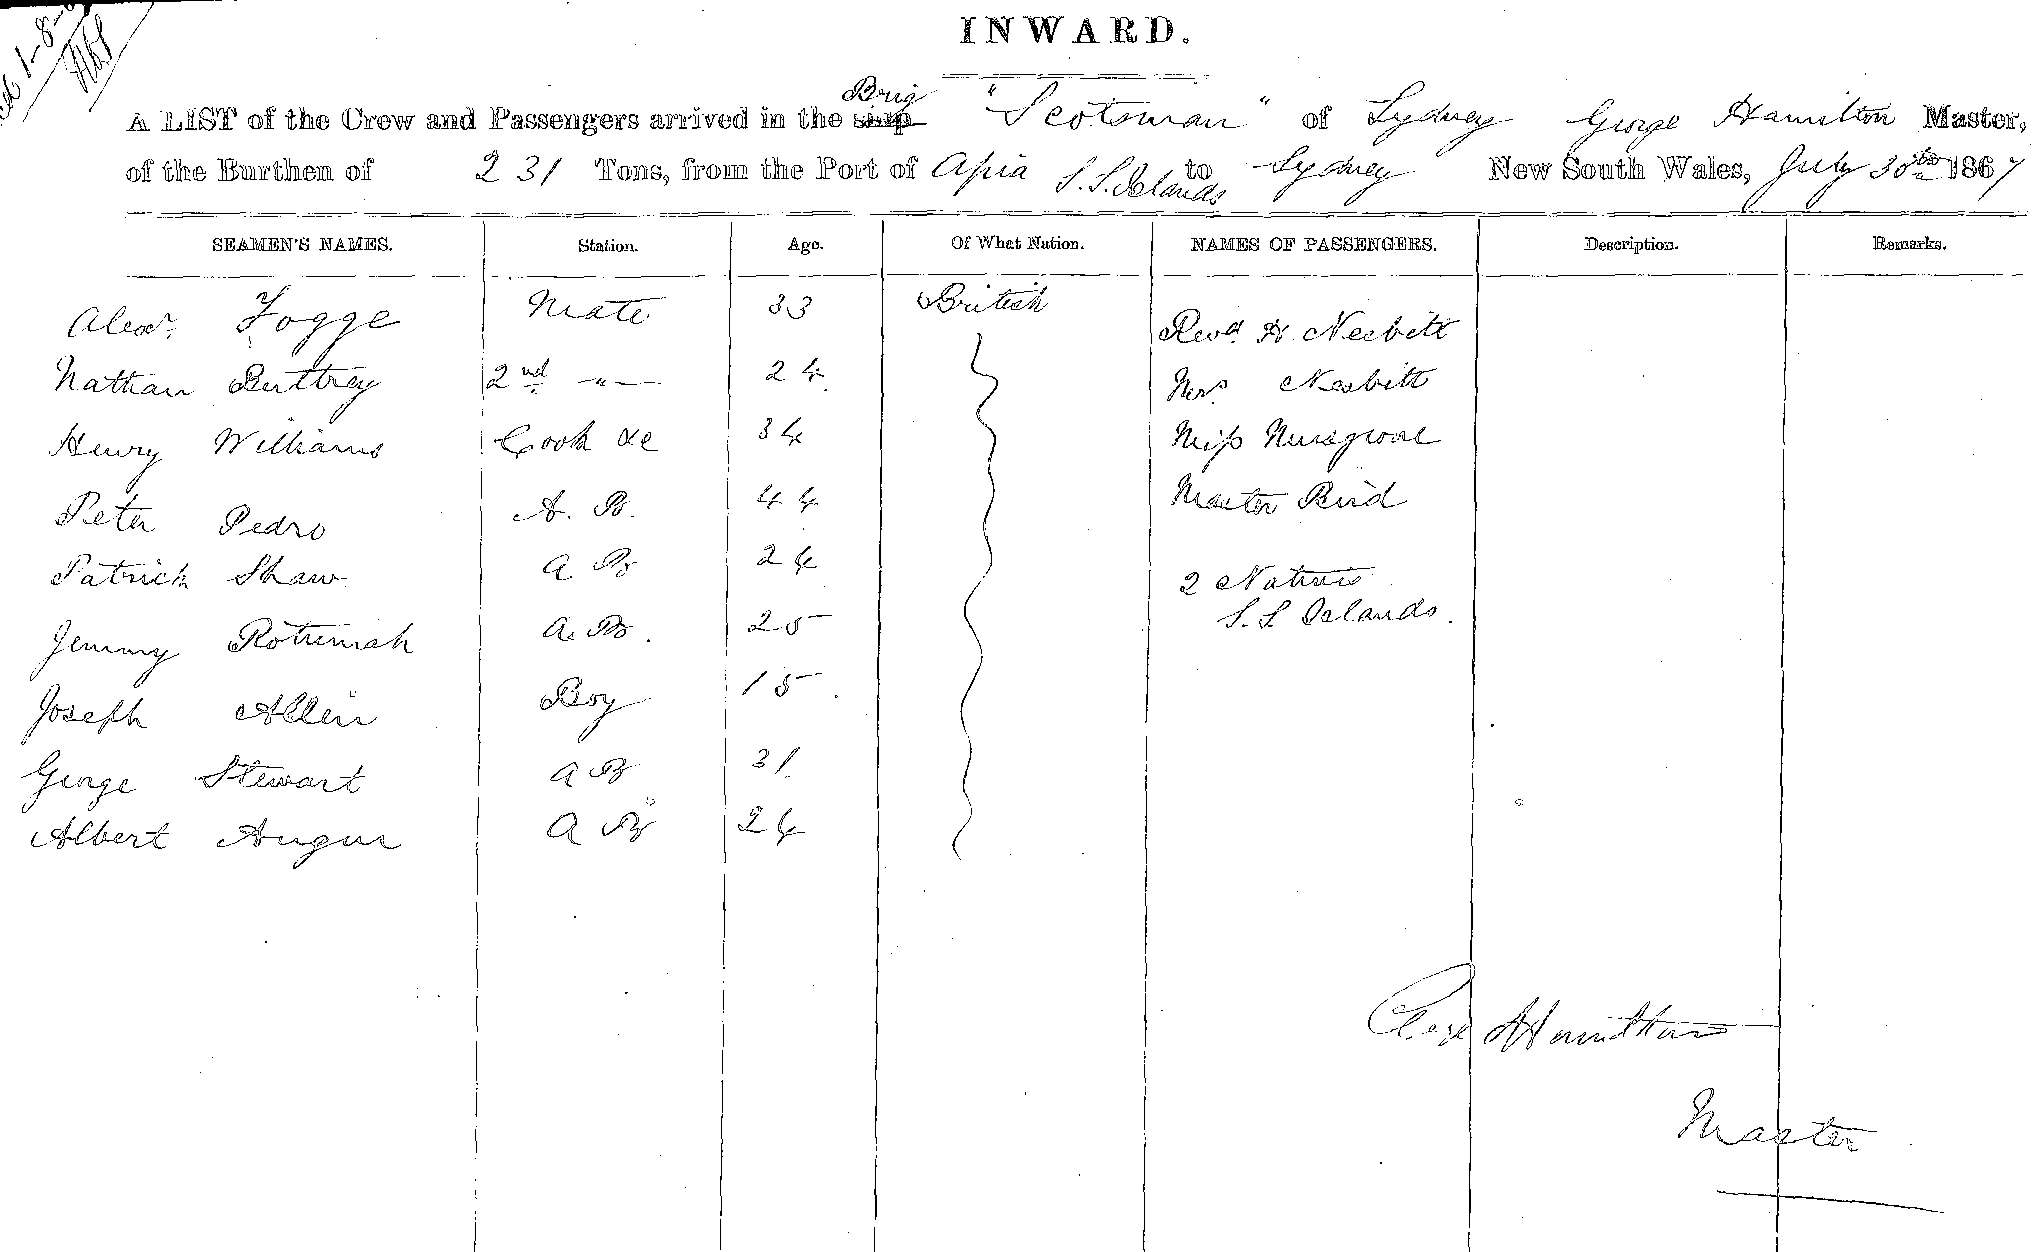 1-8-
INWARD.
Brig
A LIST of the Crew and Passengers arrived in the Ship "Scotsman" of Sydney George Hamilton Master,
of the Burthen of 231 Tons, from the Port of Apia S.S. Islands to Sydney New South Wales, July 30th 1867
SEAMEN'S NAMES. Station. Age. Of What Nation. NAMES OF PASSENGERS. Description. Remarks.
Alexr. Fogge Mate 33 British Revd. H. Nesbitt
Nathan Buttrey 2nd -"- 24 Mrs. Nesbitt
Henry Williams Cook &c 34 Miss Musgrove
Peter Pedro A. B. 44 Master Bird
Patrick Shaw A B 24 2 Natives
S. S. Islands.
Jemmy Rotumah A. B. 25
Joseph Allen Boy 15
George Stewart A B 31
Albert Angur A B 24
George Hamilton
Master